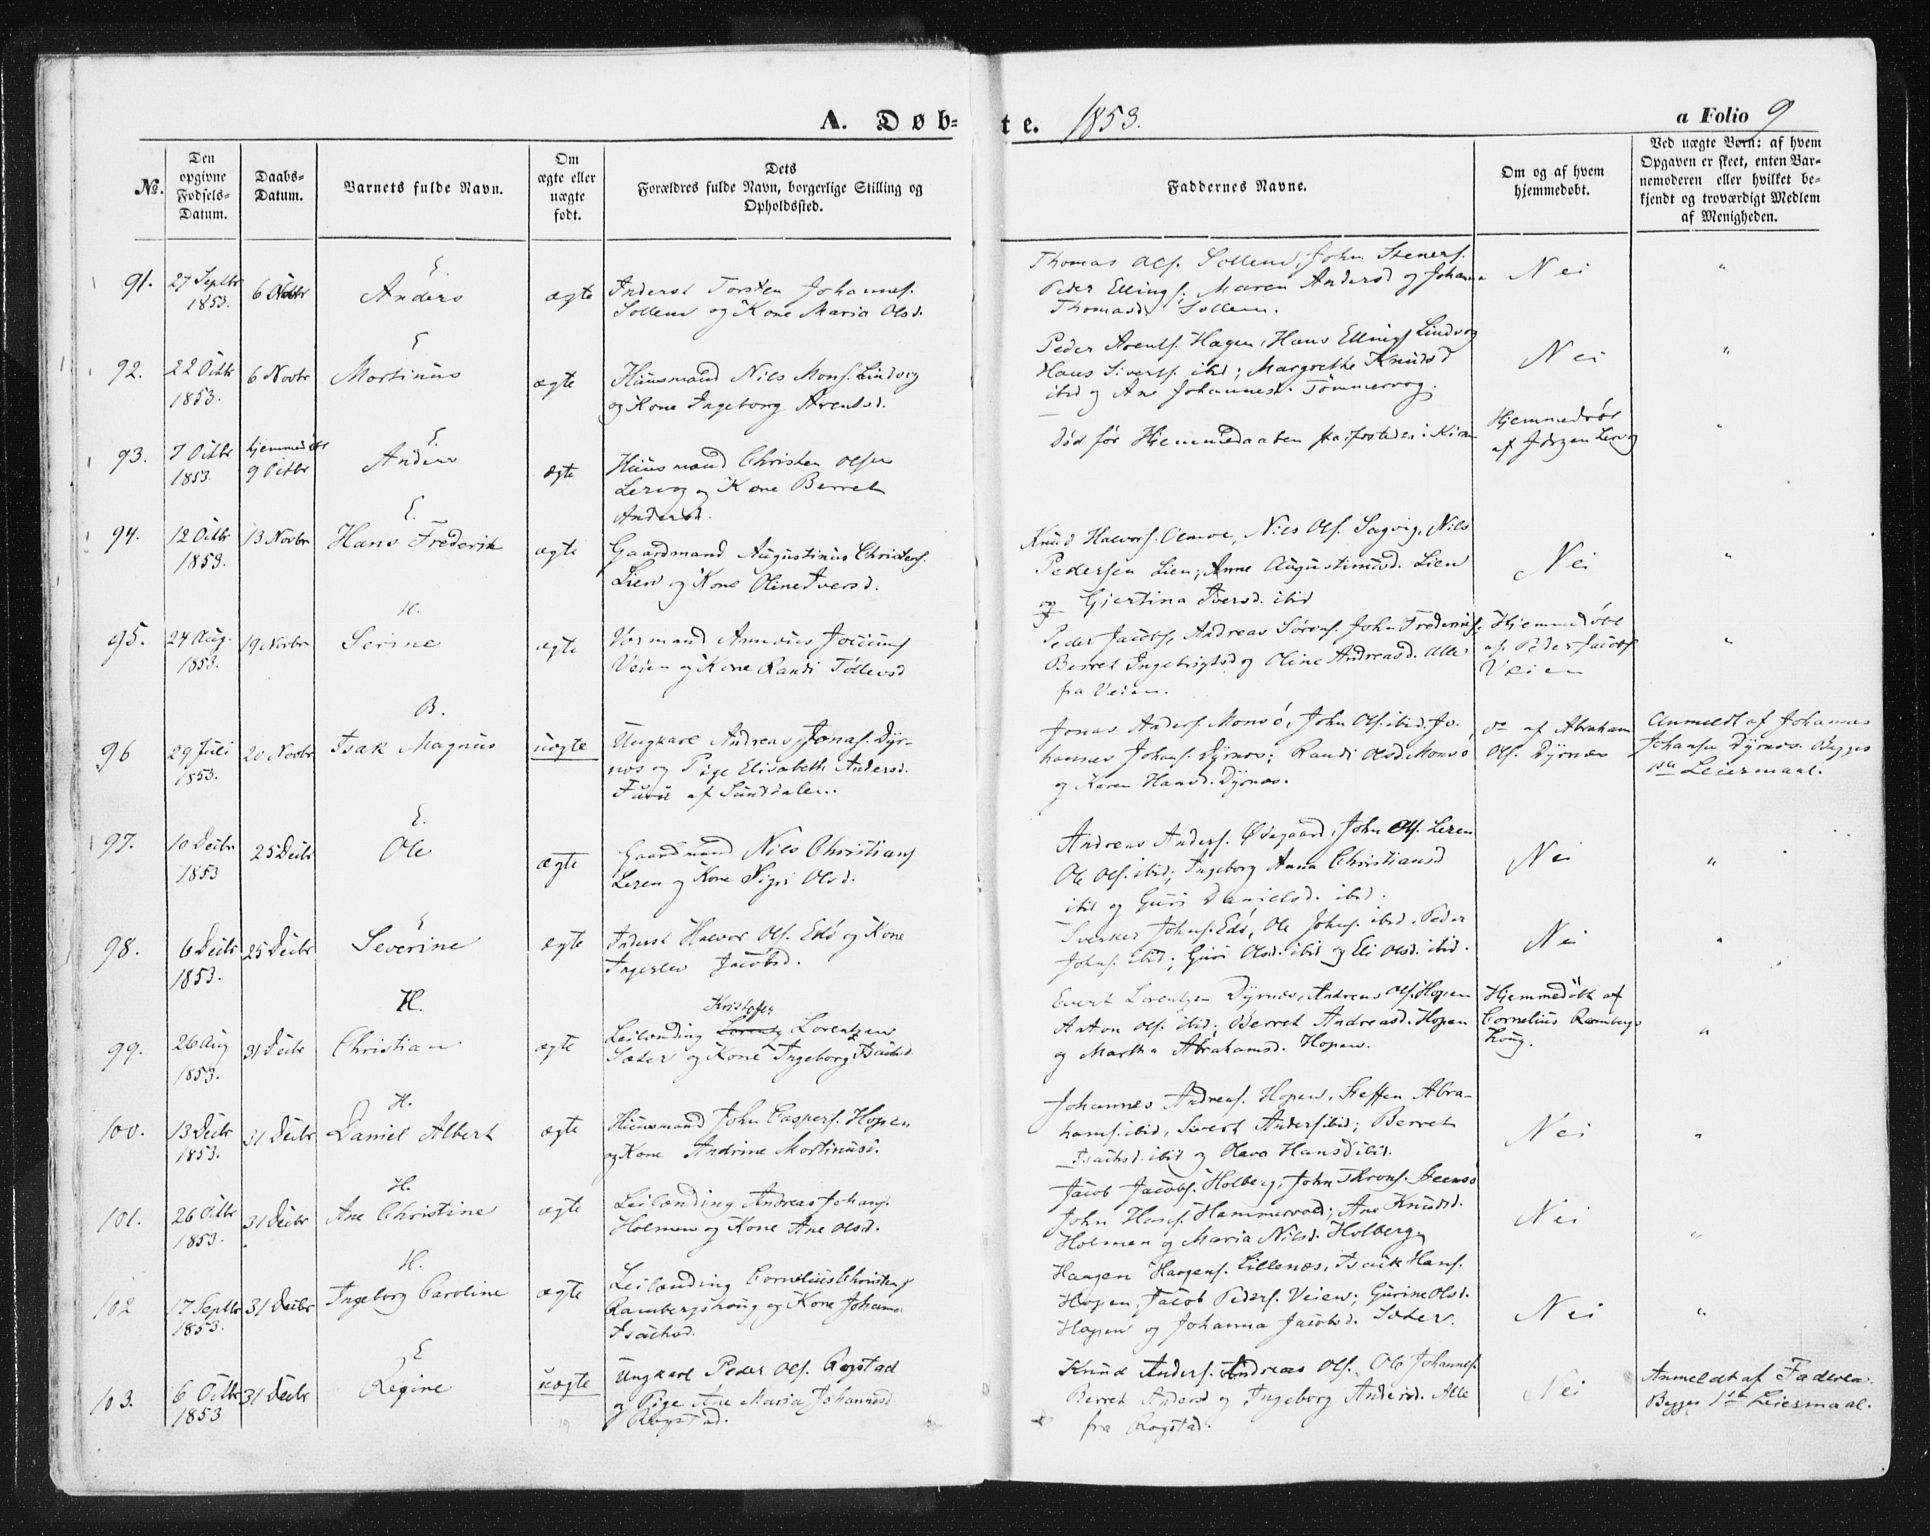 A. Døb=
te. 1853.
a Folio 9
No.
Den opgivne Fødsels-Datum.
Daabs-Datum.
Barnets fulde Navn.
Om ægte eller uægte født.
Dets Forældres fulde Navn, borgerlige Stilling og Opholdssted.
Faddernes Navne.
Om og af hvem hjemmedøbt.
Ved uægte Børn: af hvem Opgaven er skeet, enten Barnemoderen eller hvilket bekjendt og troværdigt Medlem af Menigheden.
E.
91. 27 Septbr 1853. 6 Anders ægte
Inderst Torsten Johannes.
Sollem og Kone Maria Olsd.
Thomas Ols. Sollem, John Steners.
Peder Ellings; Maren Andersd og Johanna
Thomasd. Sollem.
Nei "
E
92. 22 Octbr 1853. 6 Novbr Martinus ægte
Huusmand Nils Mons. Lindvig
og Kone Ingeborg Arentsd.
Peder Arents. Hagen, Hans Ellings Lindvog
Hans Siverts. ibd; Margrethe Knudsd
ibd og Ane Johannesd. Tømmervog.
Nei "
E.
93. 7 Octbr 1853. hjemmedøbt 9 Octbr Anders ægte
Huusmand Christen Olsen
Lervog og Kone Berret
Andersd.
Død før
Hjemmedøbt
af Jørgen Lervog
"
E.
94. 12 Octbr 1853. 13 Novbr Hans Frederik ægte
Gaardmand Augustinus Christens.
Lien og Kone Oline Iversd.
Knud Halvors. Nils Ols. Sagvig, Nils
Pedersen Lien; Anne Augustinusd. Lien
og Gjertina Iversd. ibid
Nei "
H.
95. 24 Aug. 1853. 19 Novbr Serine ægte
Veien og Kone Randi Tollevsd
Peder Jacobs, Andreas Sørens. John Frederiks;
Berret Ingebrigtsd og Oline Andreasd. Alle
fra Veien.
Hjemmedøbt
af Peder Jacobs
Veien
"
B.
96 29 Juli 1853. 20 Novbr Isak Magnus uægte
Ungkarl Andreas Jonas. Dyr-
næs og Pige Elisabeth Andersd.
Furu af Sundalen.
Jonas Anders. Monsø, John Ols. ibid, Jo-
hannes Johans. Dyrnæs; Randi Olsd. Monsø
og Karen Hansd. Dyrnæs.
do af Abraham
Ols. Dyrnæs
Anmeldt af Johannes
Johansen Dyrnæs. Begges
1ste Leiermaal.
E.
97. 10 Decbr 1853 25 Decbr Ole ægte
Gaardmand Nils Christians
Leren og Kone Sigri Olsd.
Andreas Anders. Ødegaard, John Ols. Leren
Ole Ols. ibid; Ingeborg Anna Christiansd
ibid og Guri Danielsd. ibid.
Nei "
E
98. 6 Decbr 1853. 25 Decbr Severine ægte
Inderst Halvor Ols. Edø og Kone
Ingerlev Jacobsd.
Sverker Johns. Edø, Ole Johns. ibid. Peder
Johns. ibid; Guri Olsd. ibid og Eli Olsd. ibid.
Nei "
H.
99. 26 Aug 1853. 31 Decbr Christian ægte
Kristofer
Leilænding Lorents Lorentzen
Sæter og Kone Ingeborg Isachsd.
Evert Lorentzen Dyrnæs, Andreas Ols. Hopen
Anton Ols. ibid; Berret Andreasd. Hopen
og Martha Abrahamsd. Hopen.
Hjemmedøbt af
Cornelius Rambergs
houg.
"
H.
100. 13 Decbr 1853. 31 Decbr Daniel Albert ægte
Huusmand John Caspers. Hopen
og Kone Andrine Martinusd.
Johannes Andreas. Hopen, Steffen Abra-
hams. ibid, Sivert Anders. ibid; Berret
Isachsd. ibid og Olava Hansd ibid.
Nei "
H.
101. 26 Octbr 1853. 31 Decbr Ane Christine ægte
Leilænding Andreas Johans.
Holmen og Kone Ane Olsd.
Jacob Jacobs. Holberg, John Throns. Steensø
John Hans. Hammervold; Ane Knudsd.
Holmen og Maria Nilsd. Holberg
Nei "
H.
102 17 Septbr 1853. 31 Decbr Ingeborg Caroline ægte
Leilænding Cornelius Christens
Rambergshoug og Kone Johanna
Isachsd.
Haagen Haagens. Lillenæs, Isack Hans.
Hopen Jacob Peders. Veien; Gurine Olsd.
Hopen og Johanna Jacobsd. Sæter.
Nei "
E
103. 6 Octbr 1853 31 Decbr Regine uægte
Ungkarl Peder Ols. Rogstad
og Pige Ane Maria Johannesd
Rogstad.
Knud Anders. Andreas Ols. Ole Johannes.
Berret Andersd og Ingeborg Andersd. Alle
fra Rogstad.
Nei
Anmeldt af Faderen.
Begges 1ste Leiermaal.